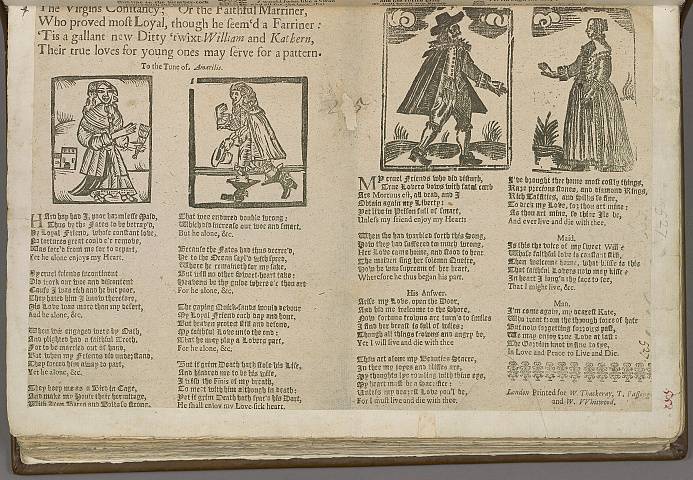 The Virgins Constancy; Or the Faithful Marriner,
Who proved most Loyal, though he seem'd a Farriner:
'Tis a gallant new Ditty 'twixt William and Kathern,
Their true loves for young ones may serve for a pattern.
To the Tune of, Amarilis.
Thus by the Fates to be betray'd,
My Loyal Friend, whose constant love,
No tortures great could e're remove,
Was forc'd from me far to depart,
Yet he alone enjoys my Heart.
My cruel friends incontinent
Did work our woe and discontent
Caus' I was rich and he but poor,
They hated him I know therefore,
His Love was more than my desert,
And he alone, &c.
When was engaged were by Oath,
And plighted had a faithful Troth,
For to be married out of hand,
But when my Friends did understand,
They forced him away to part,
Yet he alone, &c.
They keep me as a Bird in Cage,
And make my House their hermitage,
That were endured double wrong:
Which did increase our woe and smart.
But he alone, &c.
Because the Fates had thus decree'd,
Where he remained for my sake,
But I will no other sweet-heart take:
Heavens be thy guide where e're thou art
For he alone, &c.
The gaping Quick-sands would devour
My Loyal Friend each day and hour,
But heaven protect still and defend,
My faithful Love unto the end:
That he may play a Lovers part,
For he alone, &c.
But if grim Death hath stole his Life,
And hindred me to be his wife,
I wish the Fates of my breath,
To meet with him although in death:
Yet if grim Death hath spar'd his Dart,
He shall enjoy my Love-sick heart.
My cruel Friends who did disturb,
True Lovers vows with fatal curb
Are Mortuus est, all dead, and I
Obtain again my Liberty:
Yet live in Prison full of smart,
Unless my friend enjoy my Heart.
When she had warbled forth this Song,
How they had suffered so much wrong,
Her Love came home, and stood to hear
The maiden sing her solemn Queere,
Now he was supream of her heart,
Whereforc he thus began his part.
His Answer.
Arise my Love, open the Door,
And bid me welcome to the Shore,
Now fortune frowns are turn'd to smiles
And her breast is full of wiles:
Though all things frowns and angry be,
Yet I will live and die with thee
Thou art alone my Beautious Starre,
In thee my joyes and blisses are,
My thoughts lye rowling with thine eys,
My heart must be a Sacrifice:
Unless my dearest Love you'l be,
For I must live and die with thee.
I've brought thee home most costly things,
Rare precious stones, and diamond Rings,
Rich Taffaties, and silks so fine,
To deck my Love, for thou art mine:
As thou art mine, so thine Ile be,
And ever live and die with thee.
Maid.
Is this the voice of my sweet Will?
Whose faithful love is constant still,
Then welcome home, what bliss is this
That faithful Lovers now may kiss:
In heart I long'd thy face to see,
That I might live, &c.
Man,
I'm come again, my dearest Kate,
Who went from thee though voice of hate
But now forgetting sorrows past,
We may enjoy true Love at last:
The Gordian knot in fine to tye,
In Love and Peace to Live and Die.
London Printed for W. Thackeray, T. Passeng
and W. VVhitwood.